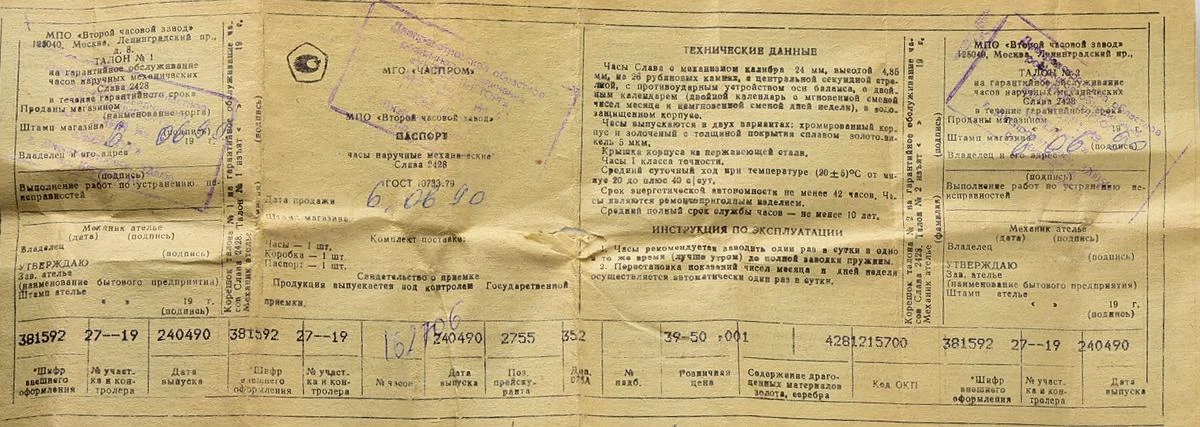 МПО «Второй часовой завод»
125040, Москва, Ленинградский пр.,
д. 8.
ТАЛОН № 1
на гарантийное обслуживание
часов наручных механических
Слава 2428
в течение гарантийного срока
Проданы магазином
(наименование торга)
Штамп магазина
(подпись)
19
Владелец и его адрес
(подпись)
Выполнение работ по устранению не-
исправностей
Механик ателье
(дата) (подпись)
Владелец
(подпись)
УТВЕРЖДАЮ
Зав. ателье
(наименование бытового предприятия)
Штамп ателье
« » 19 г.
(подпись)
381592 27--19 240490
*Шифр внешнего оформления
№ участка и контролера
Дата выпуска
Корешок талона № 1 на гарантийное обслуживание часов Слава 2428. Талон № 1 изъят « » 19 г.
Механик ателье (фамилия) (подпись)
МГО «ЧАСПРОМ»
МПО «Второй часовой завод»
ПАСПОРТ
часы наручные механические
Слава 2428
ГОСТ 10733-79
Дата продажи 6.06 90
Штамп магазина
Комплект поставки:
Часы — 1 шт.
Коробка — 1 шт.
Паспорт — 1 шт.
Свидетельство о приемке
Продукция выпускается под контролем Государственной
приемки.
381592 27--19 240490 2755 352
*Шифр внешнего оформления
№ участка и контролера
№ часов
Дата выпуска
Поз. прейскуранта
ТЕХНИЧЕСКИЕ ДАННЫЕ
Часы Слава с механизмом калибра 24 мм, высотой 4,85
мм, на 26 рубиновых камнях, с центральной секундной стрел-
кой, с противоударным устройством оси баланса, с двой-
ным календарем (двойной календарь с мгновенной сменой
чисел месяца и немгновенной сменой дней недели), в водо-
защищенном корпусе.
Часы выпускаются в двух вариантах: хромированный кор-
пус и золоченый с толщиной покрытия сплавом золото-ни-
кель 5 мкм.
Крышка корпуса из нержавеющей стали.
Часы 1 класса точности.
Средний суточный ход при температуре (20±5)°С от ми-
нус 20 до плюс 40 с/сут.
Срок энергетической автономности не менее 42 часов. Ча-
сы являются ремонтопригодным изделием.
Средний полный срок службы часов — не менее 10 лет.
ИНСТРУКЦИЯ ПО ЭКСПЛУАТАЦИИ
1. Часы рекомендуется заводить один раз в сутки в одно
и то же время (лучше утром) до полной заводки пружины.
2. Перестановка показаний чисел месяца и дней недели
осуществляется автоматически один раз в сутки.
39-50 ,001 4281215700
№ надб.
Розничная цена
Содержание драгоценных материалов золота, серебра
Код ОКП
Корешок талона № 2 на гарантийное обслуживание часов Слава 2428. Талон № 2 изъят « » 19 г.
Механик ателье (фамилия) (подпись)
МПО «Второй часовой завод»
125040, Москва, Ленинградский пр.,
д. 8.
ТАЛОН № 2
на гарантийное обслуживание
часов наручных механических
Слава 2428
в течение гарантийного срока
Проданы магазином
Штамп магазина
Владелец и его адрес
(подпись)
Выполнение работ по устранению не-
исправностей
Механик ателье
(дата) (подпись)
Владелец
(подпись)
УТВЕРЖДАЮ
Зав. ателье
(наименование бытового предприятия)
Штамп ателье
« » 19 г.
(подпись)
381592 27--19 240490
*Шифр внешнего оформления
№ участка и контролера
Дата выпуска